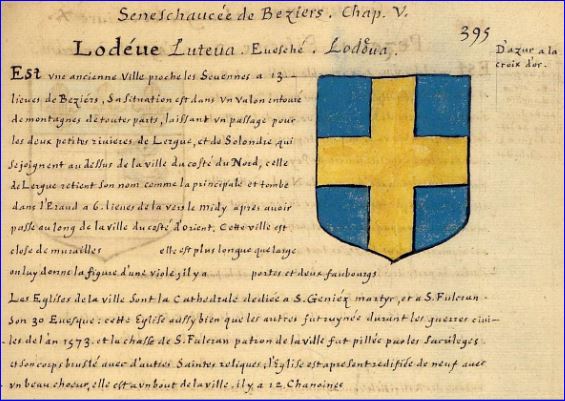 Seneschaucée de Beziers. Chap. V.
395
Lodéue Luteua. Euesché. Lodoua.
D'azur a la
croix d'or.
Est vne ancienne Ville proche les Seuennes a 13
lieues de Beziérs, Sa situation est dans vn valon entouré
de montagnes de toutes parts, laissant vn passage pour
les deux petites riuieres de Lergue, et de Solondre qui
se joignent au dessus de la ville du costé du Nord, celle
de Lergue retient son nom comme la principale et tombe
dans l'Eraud a 6. lieues de la vers le midy apres auoir
passé au long de la ville du costé d'orient. Cette ville est
close de murailles elle est plus longue que large
on luy donne la figure d'une viole, il y a portes et deux faubourgs
Les Eglises de la ville Sont la Cathedrale dediée a S. Geniéz martyr, et a S. Fulcran
Son 30 Euesque: cette Eglise aussy bien que les autres fut ruynée durant les guerres ciui-
les de l'an 1573. et la chasse de S. Fulcran patron de la ville fut pillée par les sacriléges
et son corps bruslé auec d'autres Saintes reliques, l'Eglise est apresent redifiée de neuf auec
vn beau choeur, elle est au bout de la ville. il y a 12 Chanoines